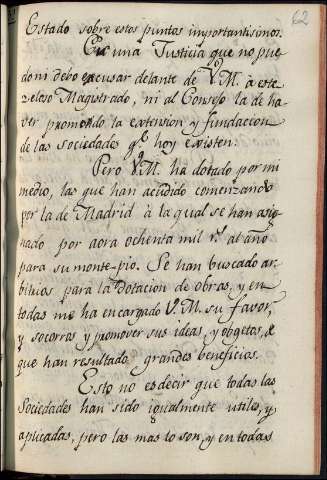 62
Estado sobre estos puntos importantisimos.
Es una Justicia que no pue
do ni debo escusar delante de V.M. à este
zeloso Magistrado, ni al Consejo la de ha
ver promovido la extension y fundacion
de las Sociedades q.e hoy existen.
Pero V.M. ha dotado por mi
medio, las que han acudido comenzando
por la de Madrid à la qual se han asig
nado por aora ochenta mil r.s al año
para su monte-pio. Se han buscado ar
bitrios para la dotacion de otras, y en
todas me ha encargado V.M. su favor,
y socorros y promover sus ideas, y objetos, de
que han resultado grandes beneficios.
Esto no es decir que todas las
Sociedades han sido igualmente utiles, y
aplicadas, pero las mas lo son, y en todas